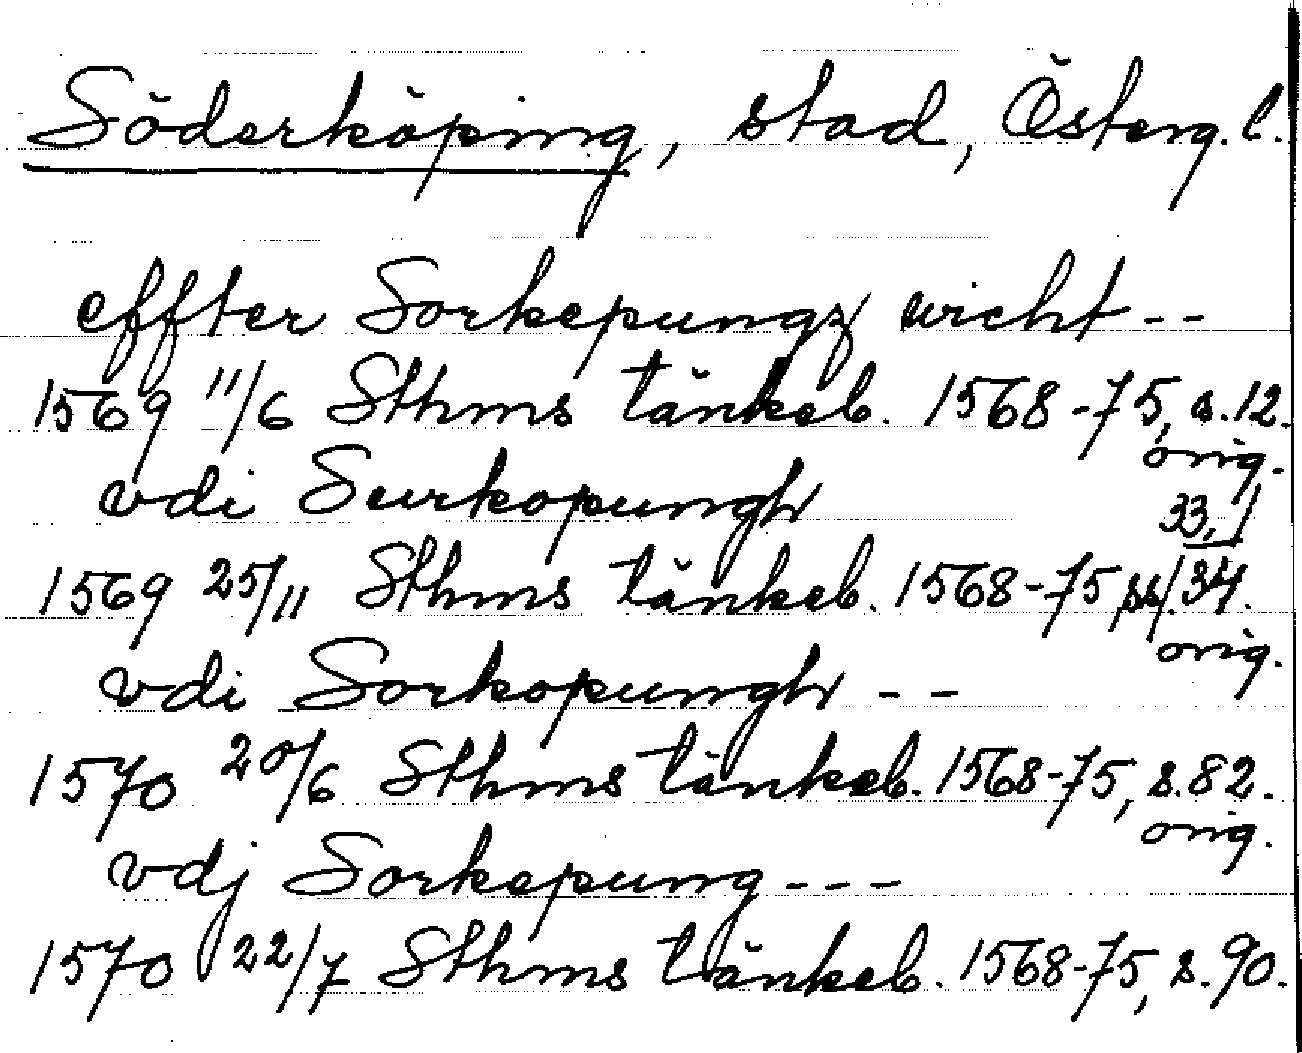 Söderköping, stad, Österg. l.
effter Sorkepungz wicht --
1569 11/6 Sthms tänkeb. 1568-75, s. 12.
orig.
vdi Surkopungh
33,
1569 25/11 Sthms tänkeb. 1568-75 34.
orig.
vdi Sorkopungh --
1570 20/6 Sthms tänkeb. 1568-75, s. 82.
orig.
vdj Sorkepung ---
1570 22/7 Sthms tänkeb. 1568-75, s. 90.